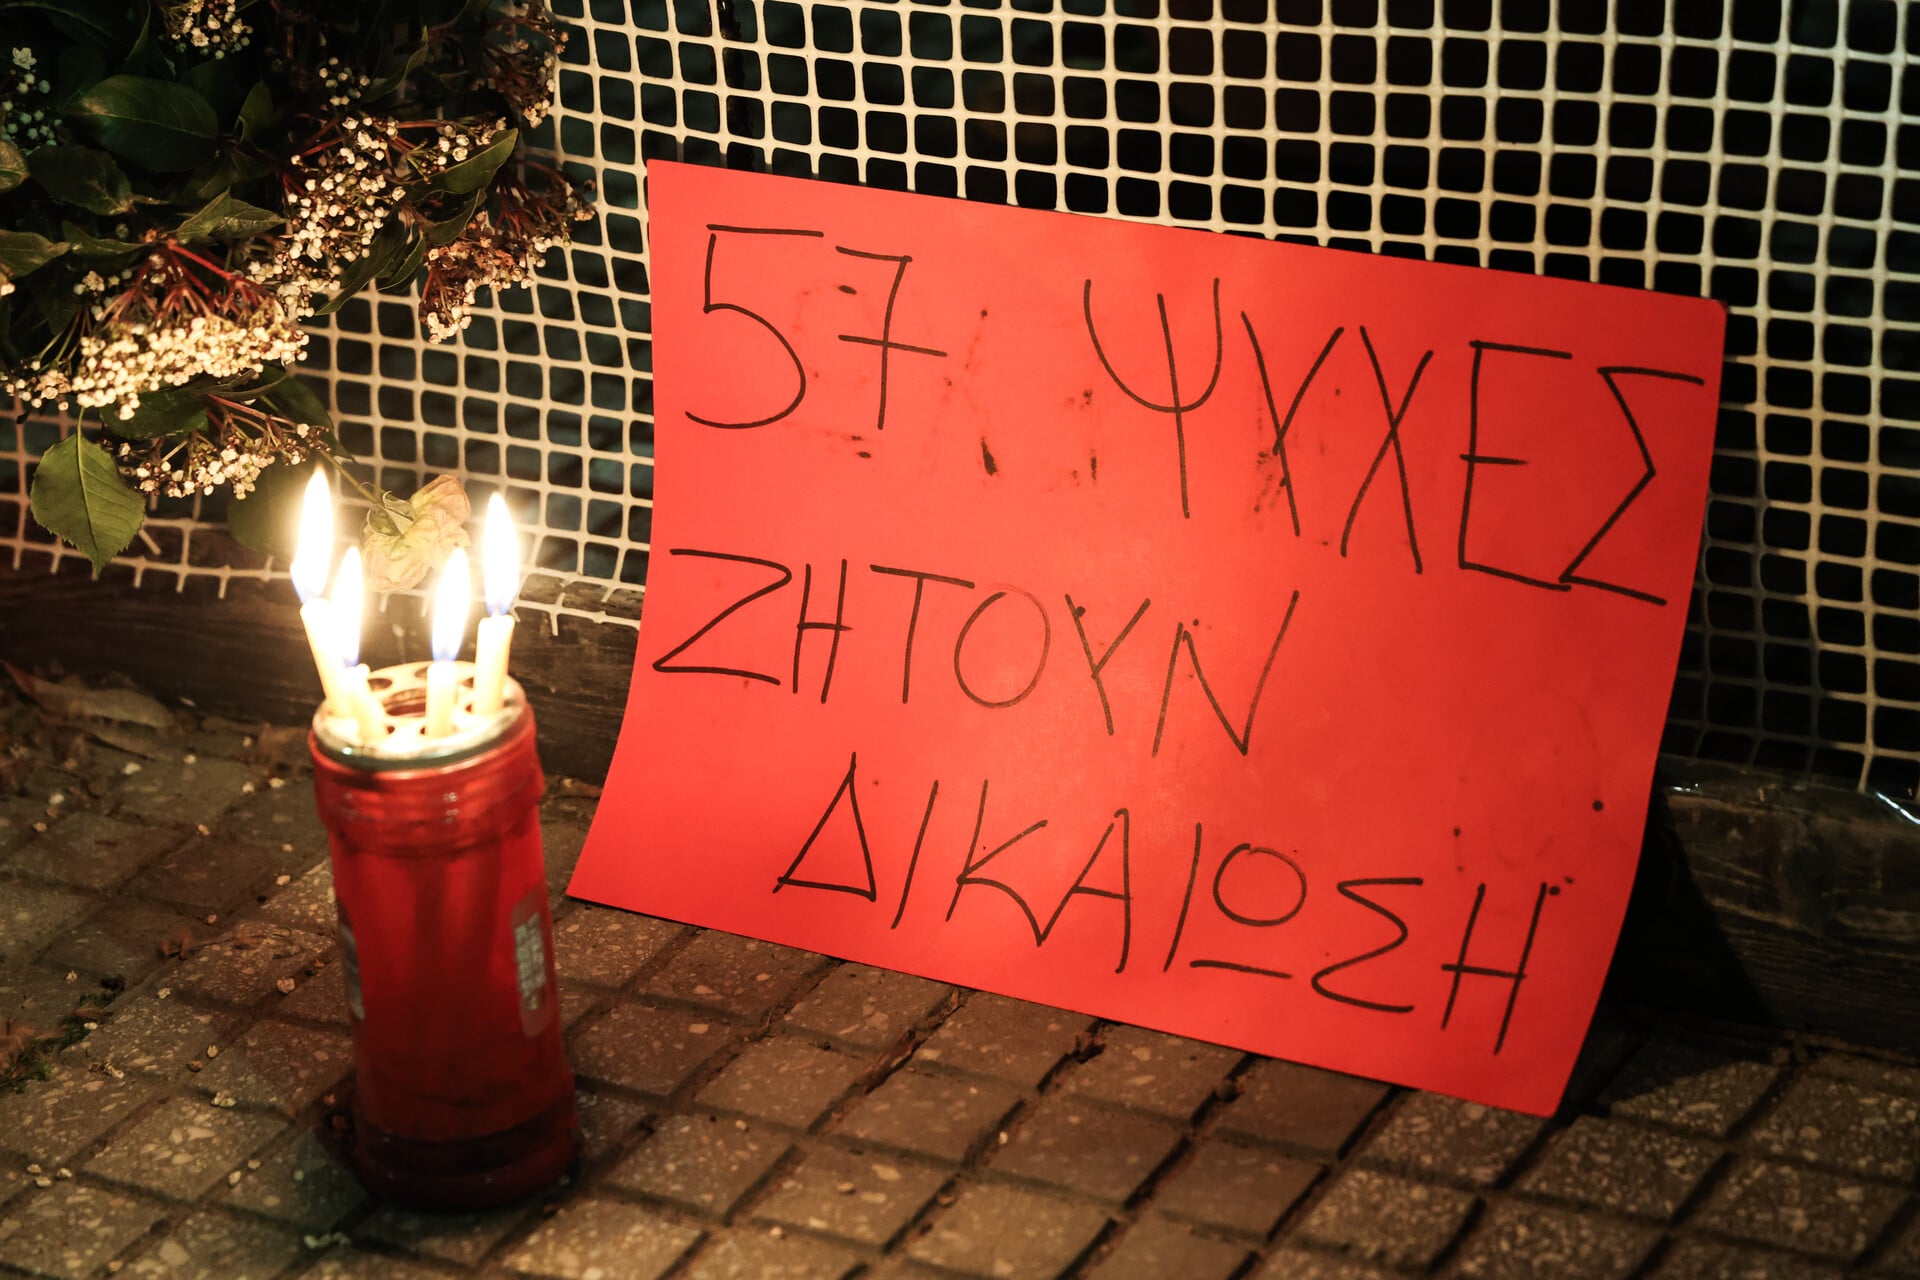 57 ΨΥΧΕΣ
ΖΗΤΟΥΝ
ΔΙΚΑΙΩΣΗ